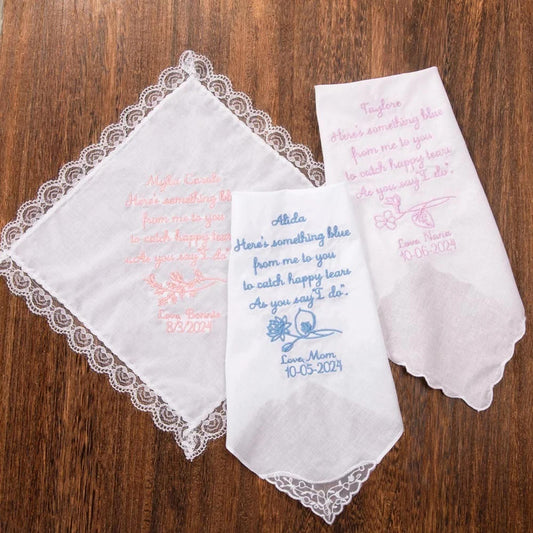 Myla Carol
Here's something blue
from me to you
to catch happy tears
As you say "I do".
Love Bonnie
8/3/2024
Alida
Here's something blue
from me to you
to catch happy tears
As you say "I do".
Love, Mom
10-05-2024
Taylore
Here's something blue
from me to you
to catch happy tears
As you say "I do".
Love Nana
10-06-2024